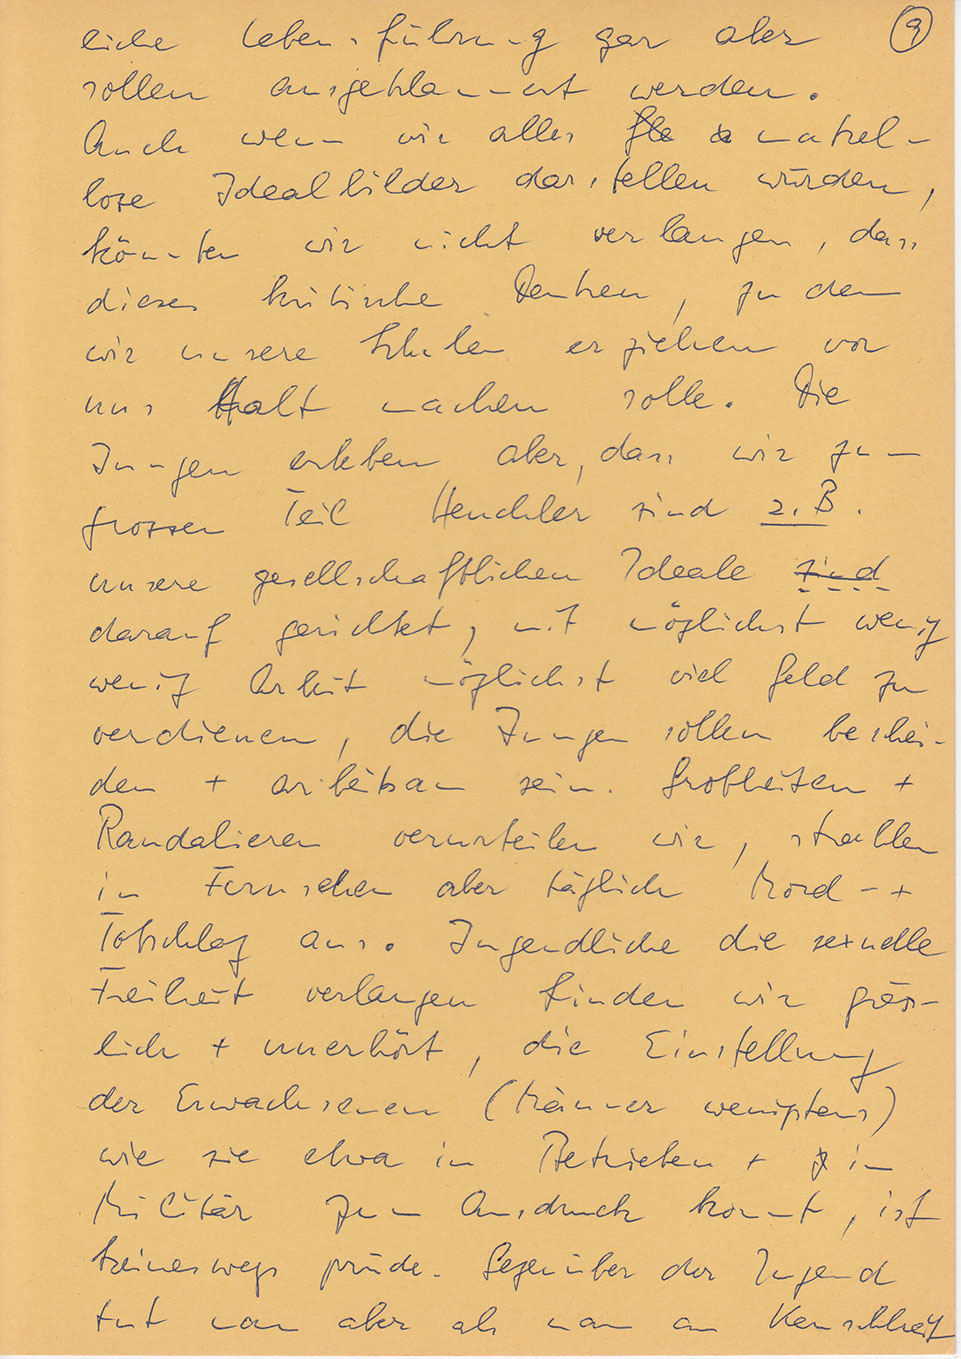 liche Lebensführung gar aber 9
sollen ausgeklammert werden.
Auch wenn wir alles makel-
lose Idealbilder darstellen würden,
könnten wir nicht verlangen, dass
dieses kritische Denken, zu dem
wir unsere Schüler erziehen vor
uns Halt machen solle. Die
Jungen erleben aber, dass wir zum
grossen Teil Heuchler sind z.B.
unsere gesellschaftlichen Ideale sind
darauf gerichtet, mit möglichst wenig
wenig Arbeit möglichst viel Geld zu
verdienen, die Jungen sollen beschei-
den + arbeitsam sein. Grobheiten +
Randalieren verurteilen wir, strahlen
im Fernsehen aber täglich Mord- +
Totschlag aus. Jugendliche die sexuelle
Freiheit verlangen finden wir gräss-
lich + unerhört, die Einstellung
der Erwachsenen (Männer wenigstens)
wie sie etwa in Betrieben + im
Militär zum Ausdruck kommt, ist
keineswegs prüde. Gegenüber der Jugend
tut man aber als man an Keuschheit